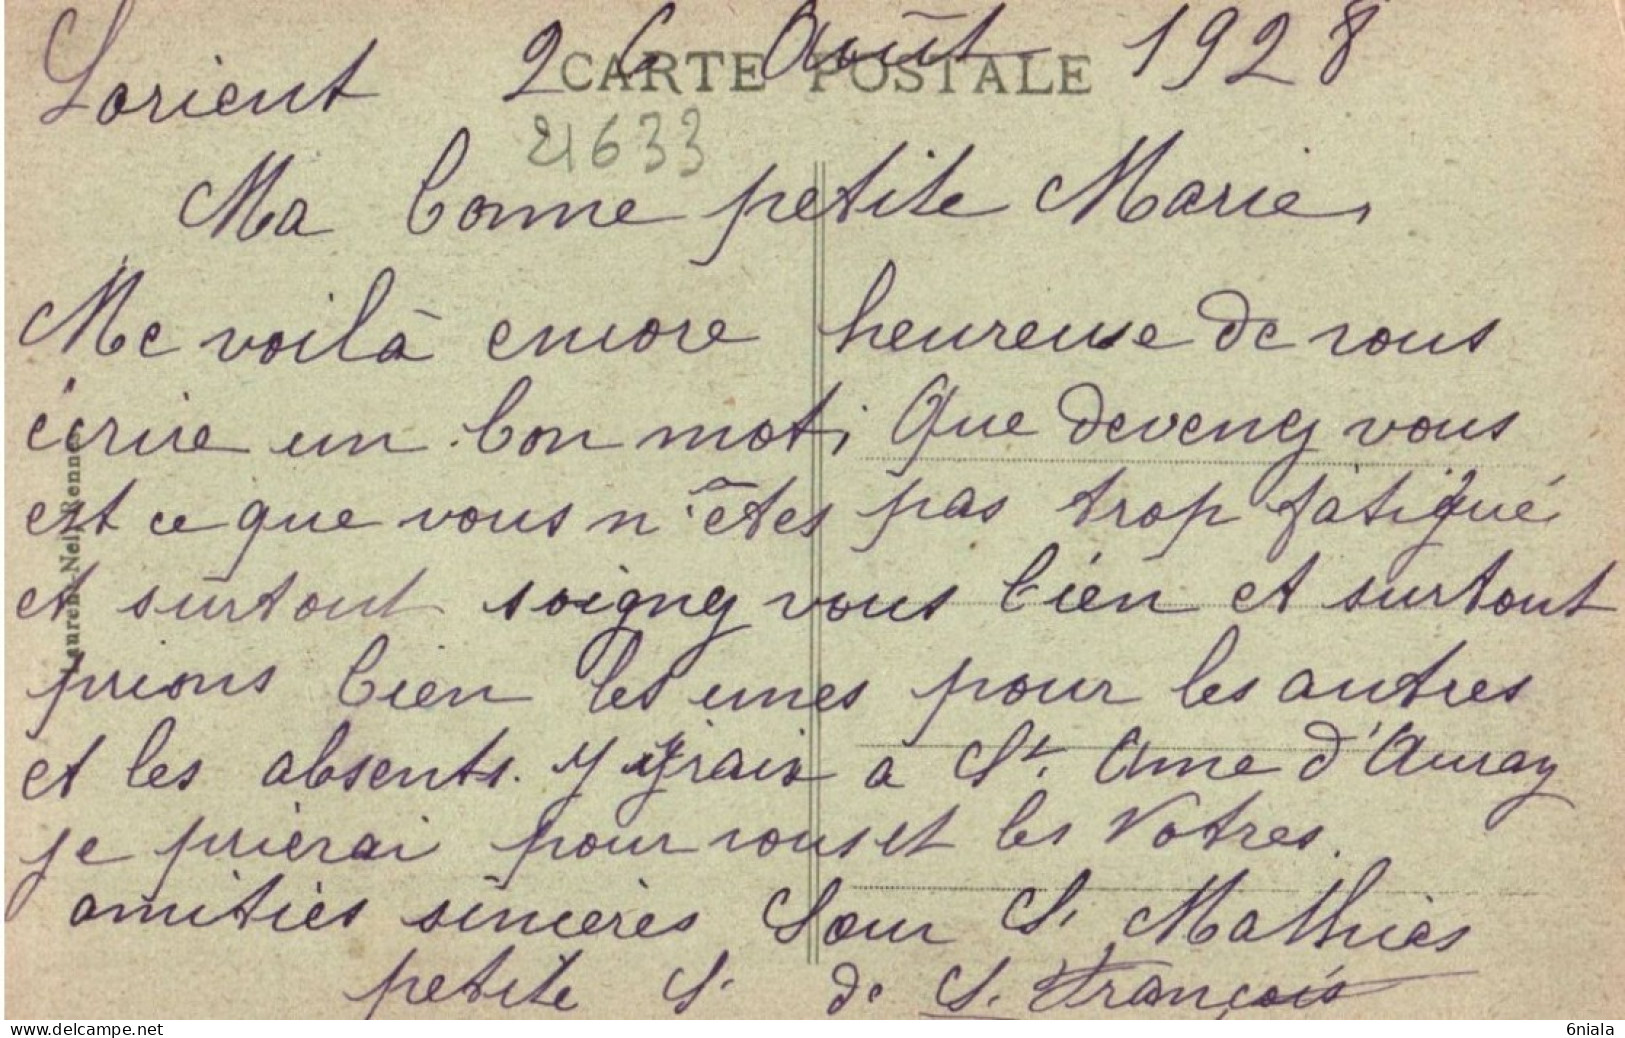 Lorient 26 Août 1928
CARTE POSTALE
21633
Ma bonne petite Marie,
Me voilà encore heureuse de vous
écrire un bon mot; Que deveney vous
est ce que vous n'êtes pas trop fatigué
et surtout soigney vous bien et surtout
prions bien les unes pour les autres
et les absents. J'irais à St. Anne d'Auray
je prierai pour vous et les Votres.
amitiés sincères Sœur S. Mathias
petite S. de S. François
Laurent-Nel, Rennes
6niala
www.delcampe.net